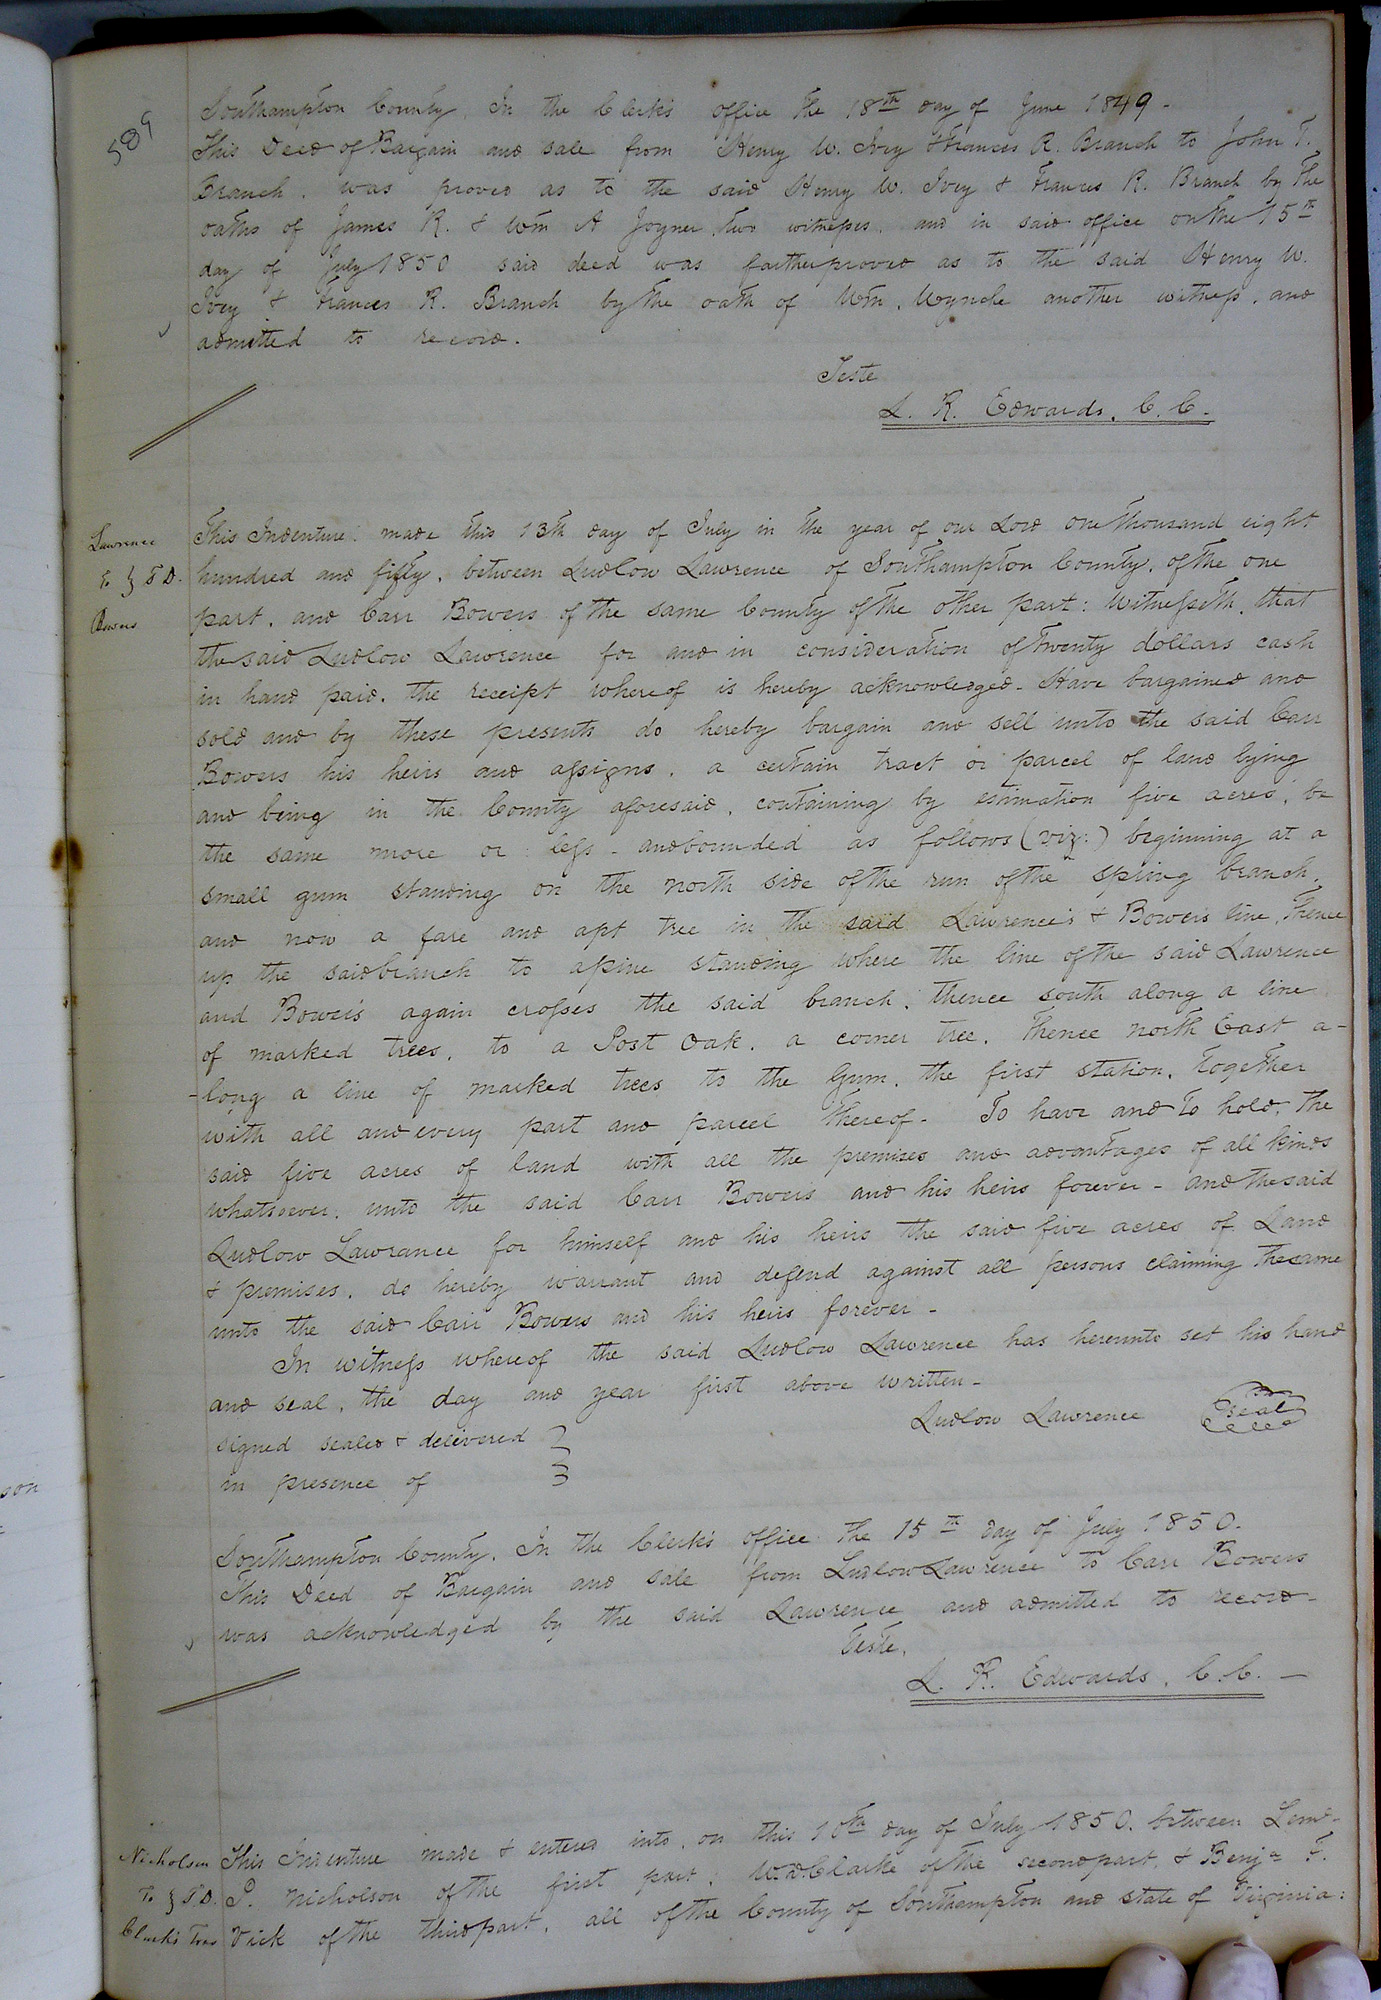 589
Southampton County. In the Clerk's office the 18th day of June 1849 -
This Deed of Bargain and sale from Henry W. Ivey & Frances R. Branch to John T.
Branch. was proved as to the said Henry W. Ivey & Frances R. Branch by the
oaths of James R. & Wm A Joyner two witnesses. and in said office on the 15th
day of July 1850 said deed was farther proved as to the said Henry W.
Ivey & Frances R. Branch by the oath of Wm. Wynche another witness. and
admitted to record.
Teste
L. R. Edwards. C. C.
Lawrence
To } T D.
Bowers
This Indenture: made this 13th day of July in the year of our Lord one thousand eight
hundred and fifty, between Ludlow Lawrence of Southampton County. of the one
part, and Carr Bowers of the same County of the other part: Witnesseth, that
the said Ludlow Lawrence for and in consideration of twenty dollars cash
in hand paid. the receipt whereof is hereby acknowledged - Have bargained and
sold and by these presents do hereby bargain and sell unto the said Carr
Bowers his heirs and assigns. a certain tract or parcel of land lying
and being in the County aforesaid, containing by estimation five acres, be
the same more or less - and bounded as follows (viz:) beginning at a
small gum standing on the north side of the run of the spring branch.
and now a fare and apt tree in the said Lawrence's & Bowers line, Thence
up the said branch to a pine standing where the line of the said Lawrence
and Bowers again crosses the said branch; thence south along a line
of marked trees, to a Post Oak. a corner tree. Thence north East a-
-long a line of marked trees to the Gum. the first station. Together
with all and every part and parcel thereof - To have and To hold. the
said five acres of land with all the premises and advantages of all kinds
whatsoever. unto the said Carr Bowers and his heirs forever - and the said
Ludlow Lawrance for himself and his heirs the said five acres of Land
& premises. do hereby warrant and defend against all persons claiming the same
unto the said Carr Bowers and his heirs forever -
In witness whereof the said Ludlow Lawrence has hereunto set his hand
and seal, the day and year first above written -
Ludlow Lawrence seal
signed sealed & delivered }
in presence of
Southampton County. In the Clerk's office the 15th day of July 1850.
This Deed of Bargain and sale from Ludlow Lawrence to Carr Bowers
was acknowledged by the said Lawrence and admitted to record -
Teste.
L. R. Edwards. C. C. -
Nicholson
To } T. D.
Clark's Trus
This Indenture made & entered into. on this 10th day of July 1850. between Leml.
P. Nicholson of the first part. W. D. Clarke of the second part, & Benja F.
Vick of the third part, all of the County of Southampton and state of Virginia:
son